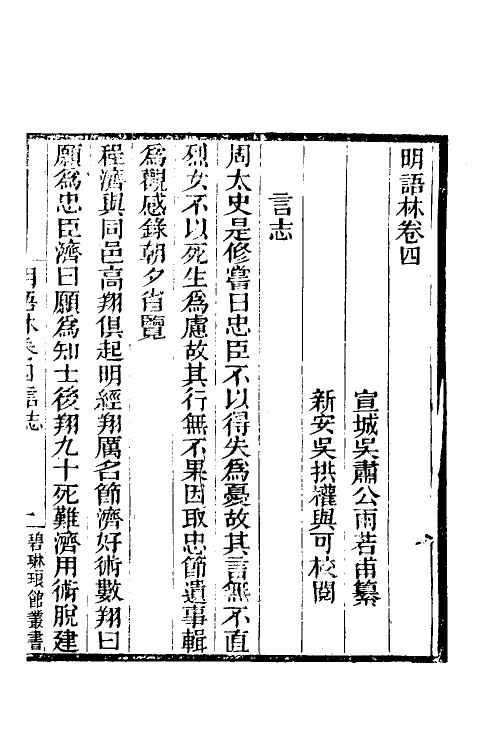 明語林卷四
宣城吳肅公雨若甫纂
新安吳拱權與可校閱
言志
周太史是修嘗曰忠臣不以得失為憂故其言無不直
烈女不以死生為慮故其行無不果因取忠節遺事輯
為觀感錄朝夕省覽
程濟與同邑高翔俱起明經翔厲名節濟好術數翔曰
願為忠臣濟曰願為知士後翔九十死難濟用術脫建
明語林卷四言志 一 碧琳琅館叢書